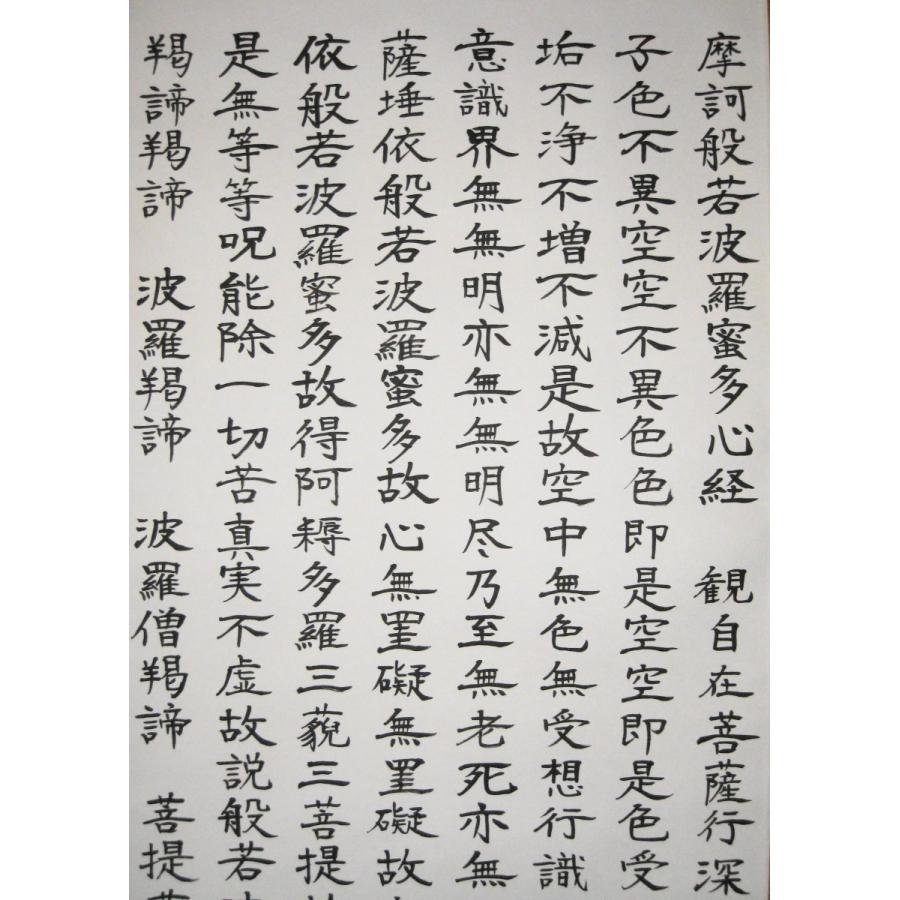 摩訶般若波羅蜜多心経　観自在菩薩行深
子色不異空空不異色色即是空空即是色受
垢不浄不増不減是故空中無色無受想行識
意識界無無明亦無無明尽乃至無老死亦無
薩埵依般若波羅蜜多故心無罣礙無罣礙故
依般若波羅蜜多故得阿耨多羅三藐三菩提
是無等等呪能除一切苦真実不虚故説般若
羯諦羯諦　波羅羯諦　波羅僧羯諦　菩提